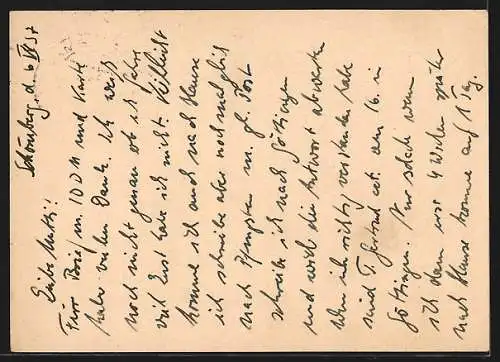 Schönberg, d. 6. VI 57
Liebe Mutti!
Für Brief m. 10 DM und Karte
habe vielen Dank. Ich weiß
noch nicht genau ob ich fahre
viel Lust habe ich nicht. Vielleicht
komme ich auch nach Hause
ich schreibe aber noch mal gleich
nach Pfingsten m. gl. Post
schreibe ich nach Göttingen
und will die Antwort abwarten
Wenn ich richtig verstanden habe
sind T. Gertrud ect. am 16. in
Göttingen. Nur schade wenn
ich dann erst 4 Wochen später
nach Hause komme auf 1 Tag.